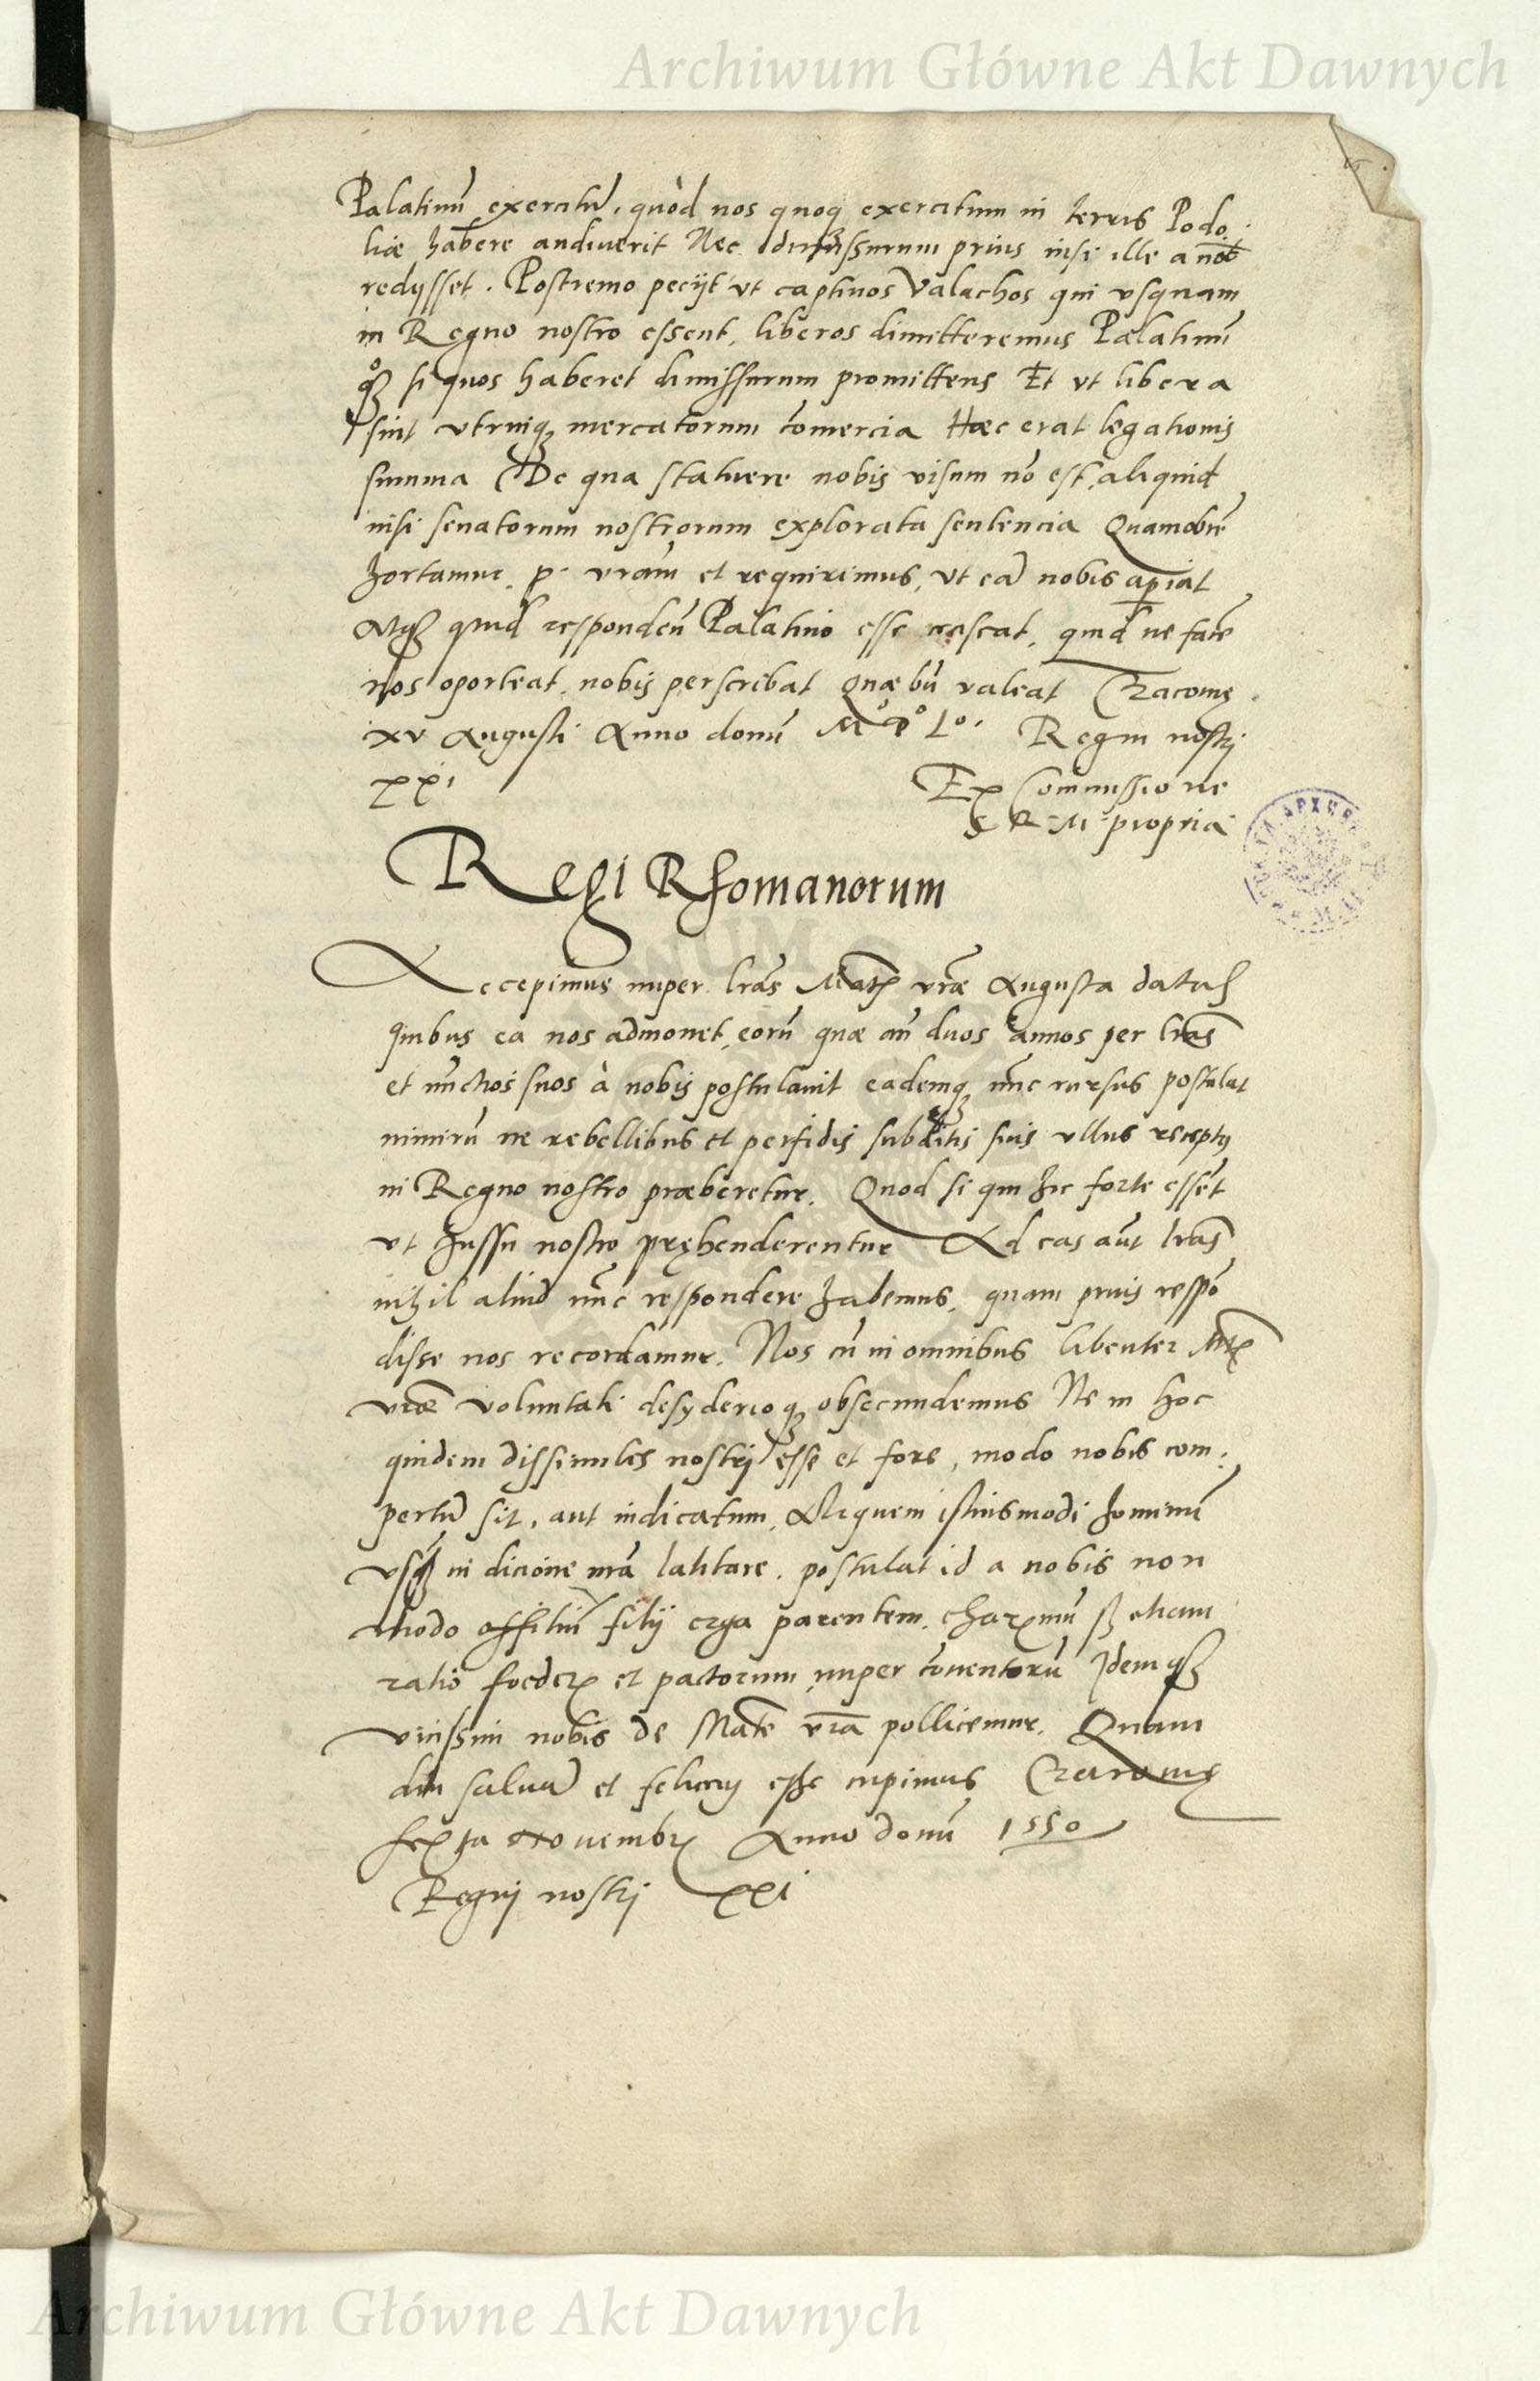 Archiwum Główne Akt Dawnych
Palatinū exercitū, quòd nos quoq exercitum in terris Podo
liæ habere audiuerit Nec dimissurum prius nisi ille a nob
redijsset. Postremo pecijt vt captiuos Valachos qui vsquam
in Regno nostro essent, liberos dimitteremus Palatinū
qȝ si quos haberet dimissurum promittens Et vt libera
sint vtrinqȝ mercatorum comercia Hæc erat legationis
summa De qua statuere nobis visum nō est, aliquid
nisi senatorum nostrorum explorata sentencia Quamobrē
hortamur p. vram et requirimus, vt eā nobis aperiat
Atqȝ quid respondēn Palatino esse censeat, quid ve facē
nos oporteat nobis perscribat Quæ bn̄ valeat Cracouię
xv Augusti Anno domī Mº Dº Lº. Regni nostri
xxi
Ex Commissione
S R M propria
Regi Rhomanorum
Accepimus nuper lrās Mātis vræ Augusta datas
quibus ea nos admonet, eorū quæ an̄ duos annos per lrās
et nūctios suos à nobis postulauit eademqȝ nūc rursus postulat
nimirū ne rebellibus et perfidis subditis suis vllus receptus
in Regno nostro præberetur. Quod si qui hic forte essēt
vt Jussu nostro pręhenderentur Ad eas aūt lrās
nihil aliud nūc respondere habemus, quam prius respō
disse nos recordamur. Nos cū in omnibus libenter Mtis
vræ voluntati desyderioqȝ obsecundemus Ne in hoc
quidem dissimiles nostrj esse et fore, modo nobis com
pertū sit, aut indicatum, Aliquem istiusmodi hominū
vsqȝ in dicione nrā latitare. postulat id a nobis non
modo offitiū filij erga parentem charismū sȝ etiam
ratio foederis et pactorum nuper cōuentorū Idemqȝ
vicissim nobis de Māte vrā pollicemur. Quam
diu saluā et felicem esse cupimus Cracouię
sexta Nouembris Anno domī 1550
Regnj nostrj xxi
Archiwum Główne Akt Dawnych